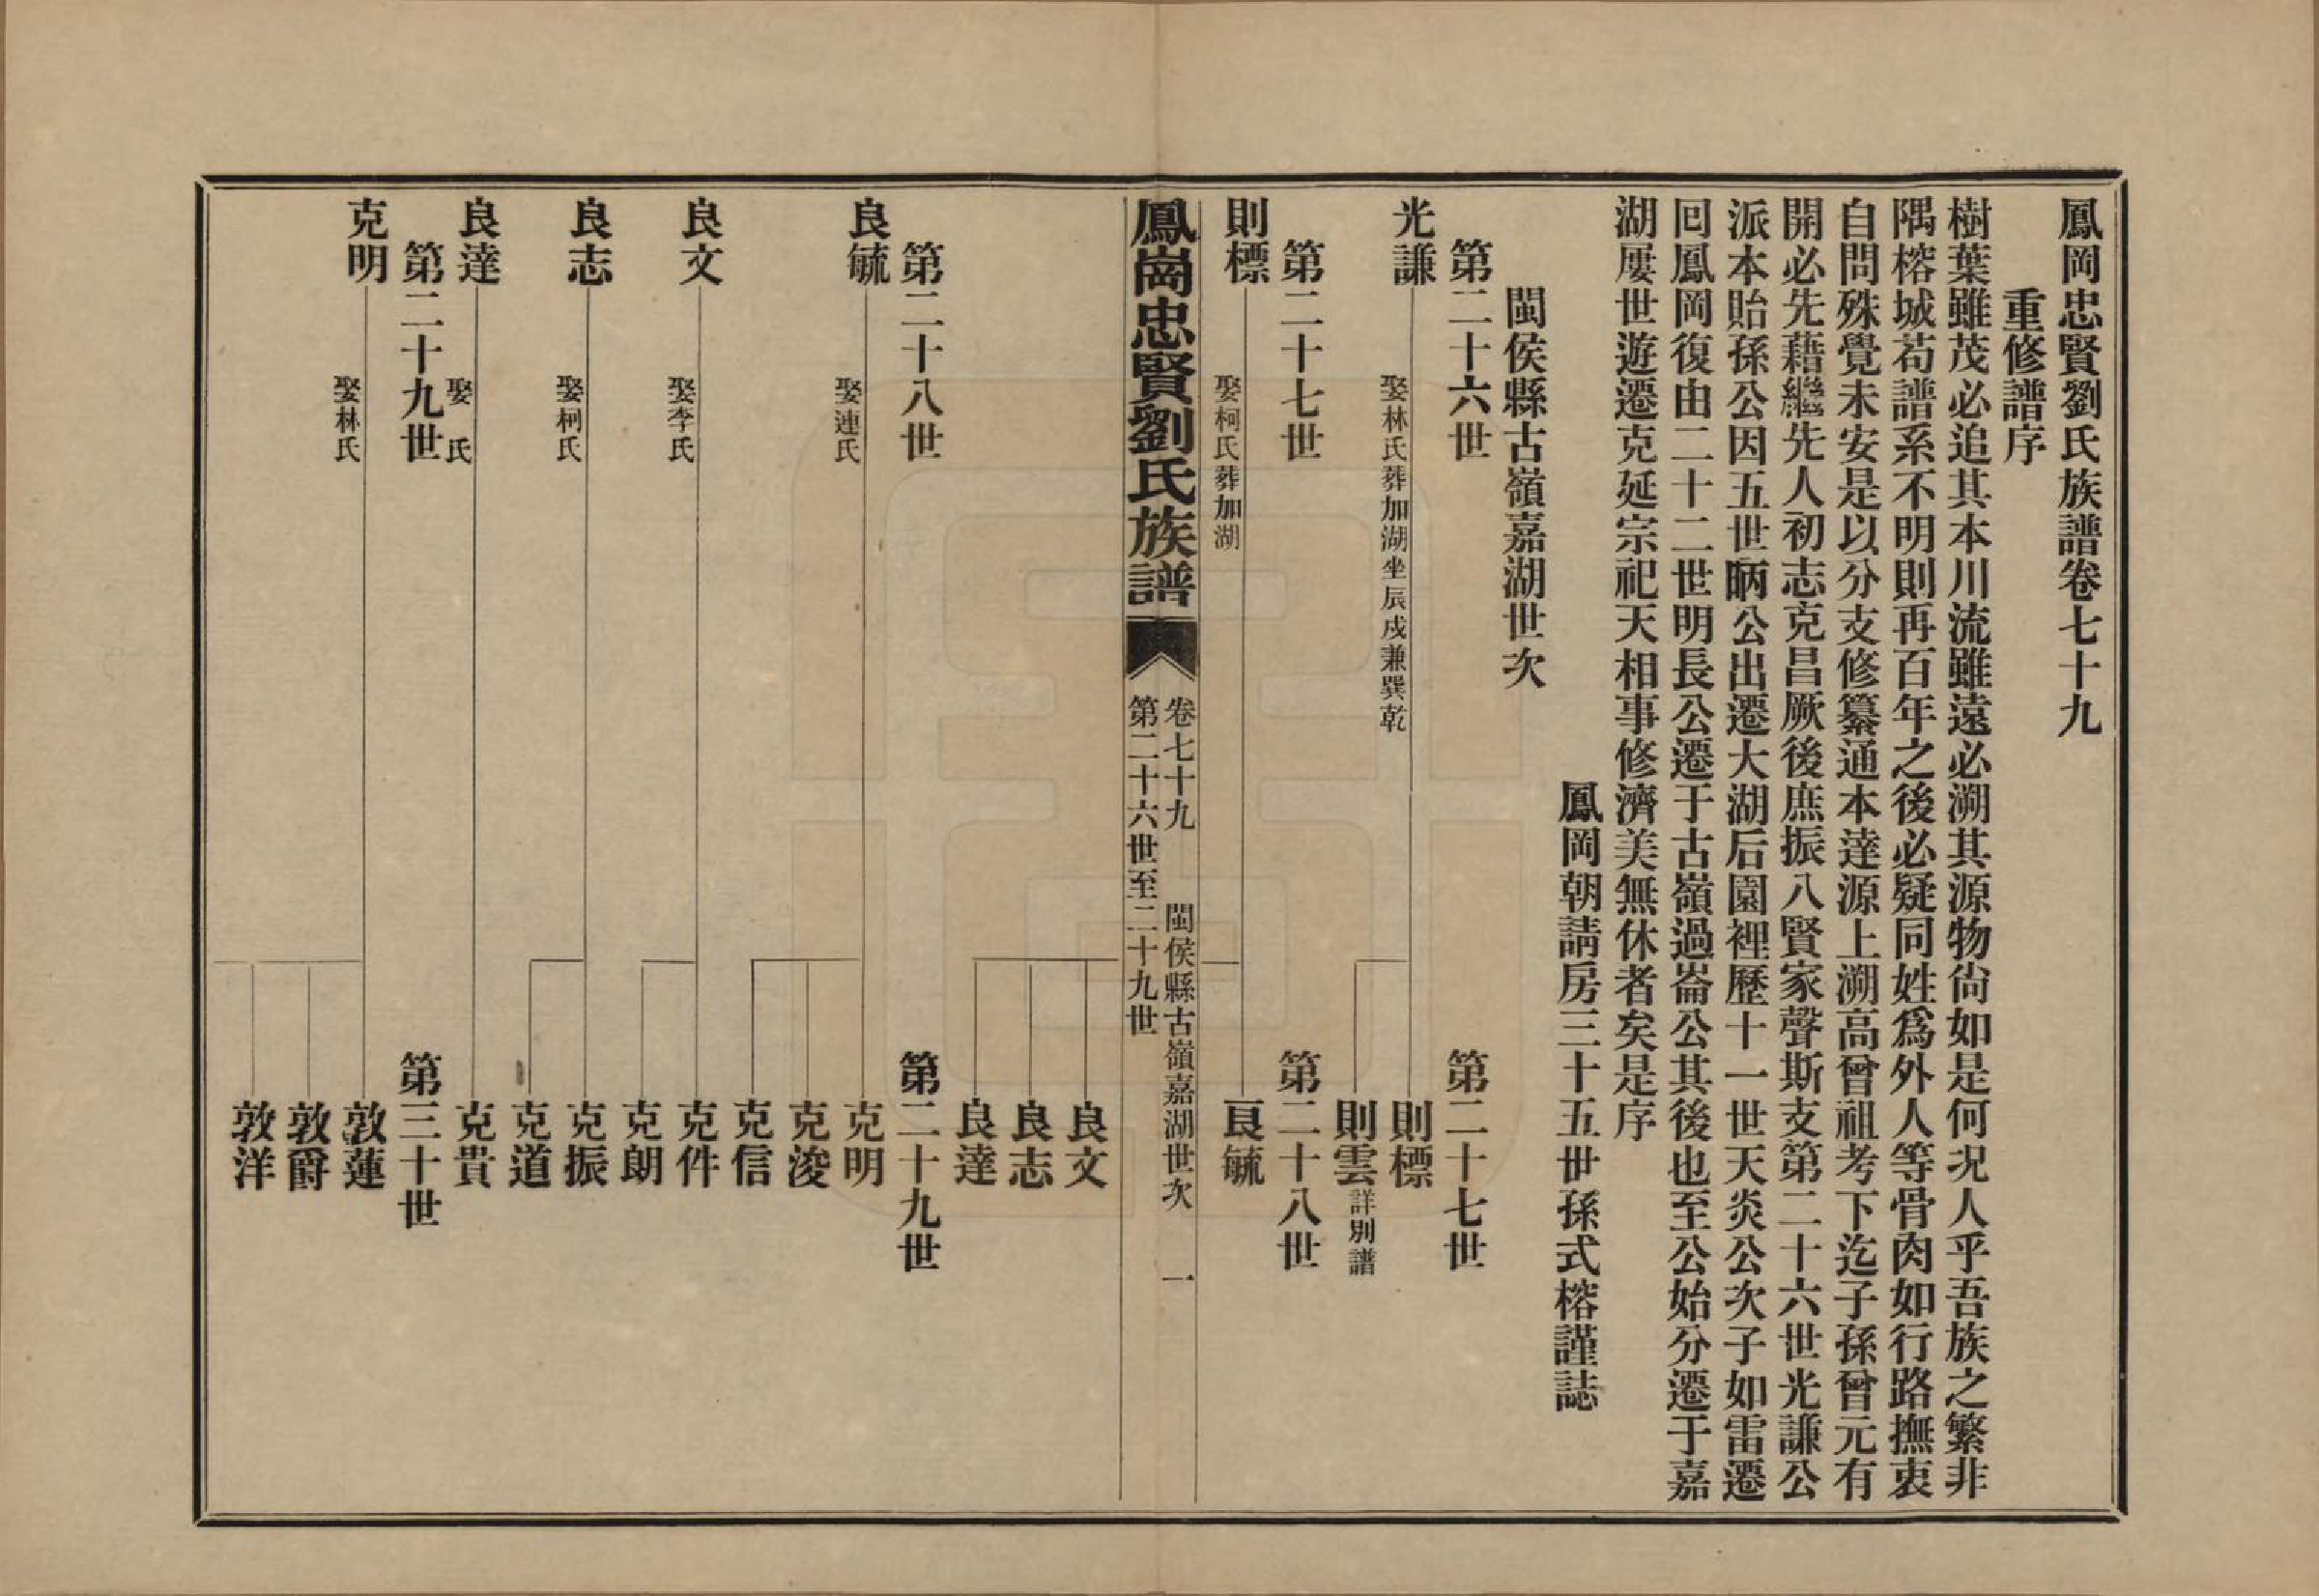 鳳岡忠賢劉氏族譜卷七十九
重修譜序
樹葉雖茂必追其本川流雖遠必溯其源物尙如是何况人乎吾族之繁非
隅榕城茍譜系不明則再百年之後必疑同姓爲外人等骨肉如行路撫衷
自問殊覺未安是以分支修纂通本達源上溯高曾祖考下迄子孫曾元有
開必先藉繼先人初志克昌厥後庶振八賢家聲斯支第二十六世光謙公
派本貽孫公因五世昞公出遷大湖后園裡歷十一世天炎公次子如雷遷
回鳳岡復由二十二世明長公遷于古嶺過崙公其後也至公始分遷于嘉
湖屢世遊遷克延宗祀天相事修濟美無休者矣是序
鳳岡朝請房三十五世孫式榕謹誌
閩侯縣古嶺嘉湖世次
第二十六世 第二十七世
光謙 娶林氏葬加湖坐辰戍兼巽乾 則標
則雲詳別譜
第二十七世 第二十八世
則標 娶柯氏葬加湖 良毓
鳳崗忠賢劉氏族譜
卷七十九 閩侯縣古嶺嘉湖世次 一
第二十六世至二十九世
良文
良志
良達
第二十八世 第二十九世
良毓 娶連氏 克明
克浚
克信
良文 娶李氏 克件
克朗
良志 娶柯氏 克振
克道
良達 娶 氏 克貴
第二十九世 第三十世
克明 娶林氏 敦蓮
敦爵
敦洋